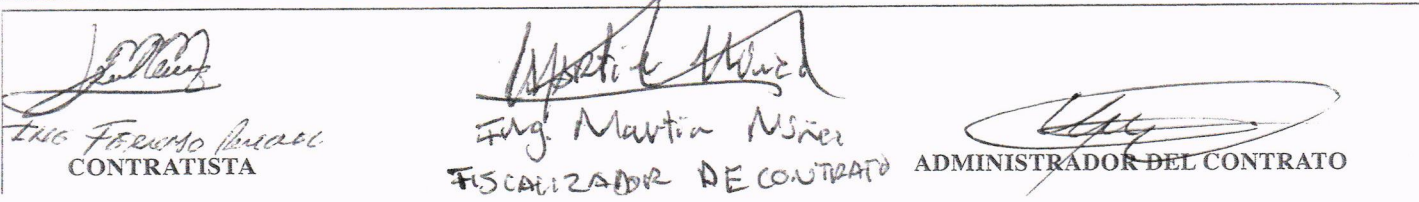 Martin Núñez
ING
CONTRATISTA
Ing. Martin Núñez
FISCALIZADOR DE CONTRATO
ADMINISTRADOR DEL CONTRATO